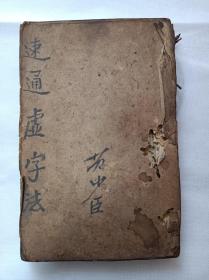 速通虚字法